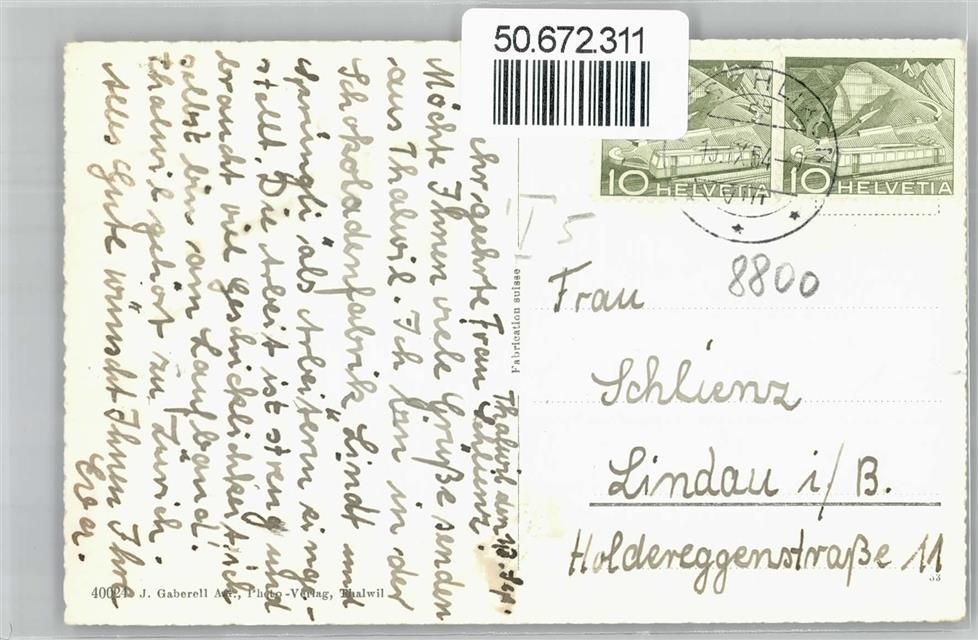 50.672.311
Thalwil den 13. Sep.
Sehr geehrte Frau Schlienz!
Möchte Ihnen viele Grüße senden
aus Thalwil. Ich bin in der
Schokoladenfabrik Lindt und
Sprüngli als Arbeiterin einge-
stellt. Die Arbeit ist streng und
braucht viel Geschicklichkeit
selbst bis am Laufband.
Thalwil gehört zu Zürich.
Alles Gute wünscht Ihnen Ihre
Eva.
40024 J. Gaberell A.G., Photo-Verlag, Thalwil
Fabrication suisse
10 HELVETIA
10 HELVETIA
T 5
8800
Frau
Schlienz
Lindau i/B.
Holdereggenstraße 11
53